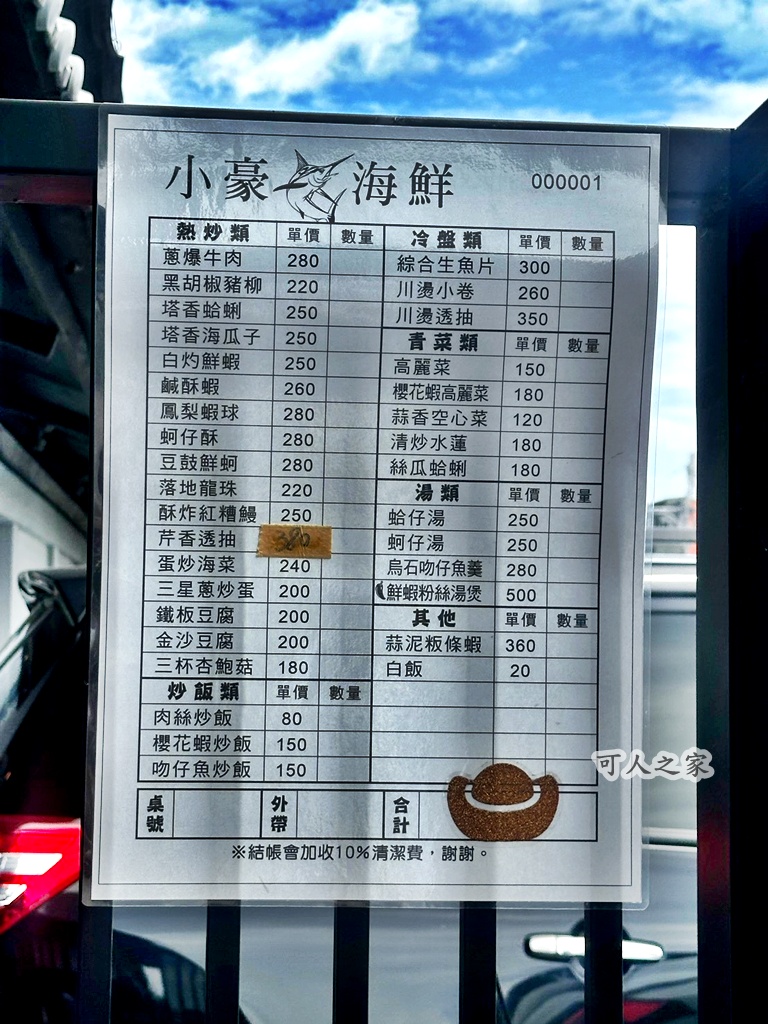 小豪海鮮 000001
熱炒類 單價 數量
蔥爆牛肉 280
黑胡椒豬柳 220
塔香蛤蜊 250
塔香海瓜子 250
白灼鮮蝦 250
鹹酥蝦 260
鳳梨蝦球 280
蚵仔酥 280
豆鼓鮮蚵 280
落地龍珠 220
酥炸紅糟鰻 250
芹香透抽 380
蛋炒海菜 240
三星蔥炒蛋 200
鐵板豆腐 200
金沙豆腐 200
三杯杏鮑菇 180
炒飯類 單價 數量
肉絲炒飯 80
櫻花蝦炒飯 150
吻仔魚炒飯 150
冷盤類 單價 數量
綜合生魚片 300
川燙小卷 260
川燙透抽 350
青菜類 單價 數量
高麗菜 150
櫻花蝦高麗菜 180
蒜香空心菜 120
清炒水蓮 180
絲瓜蛤蜊 180
湯類 單價 數量
蛤仔湯 250
蚵仔湯 250
烏石吻仔魚羹 280
鮮蝦粉絲湯煲 500
其他 單價 數量
蒜泥粄條蝦 360
白飯 20
桌號 外帶 合計
※結帳會加收10%清潔費，謝謝。
可人之家